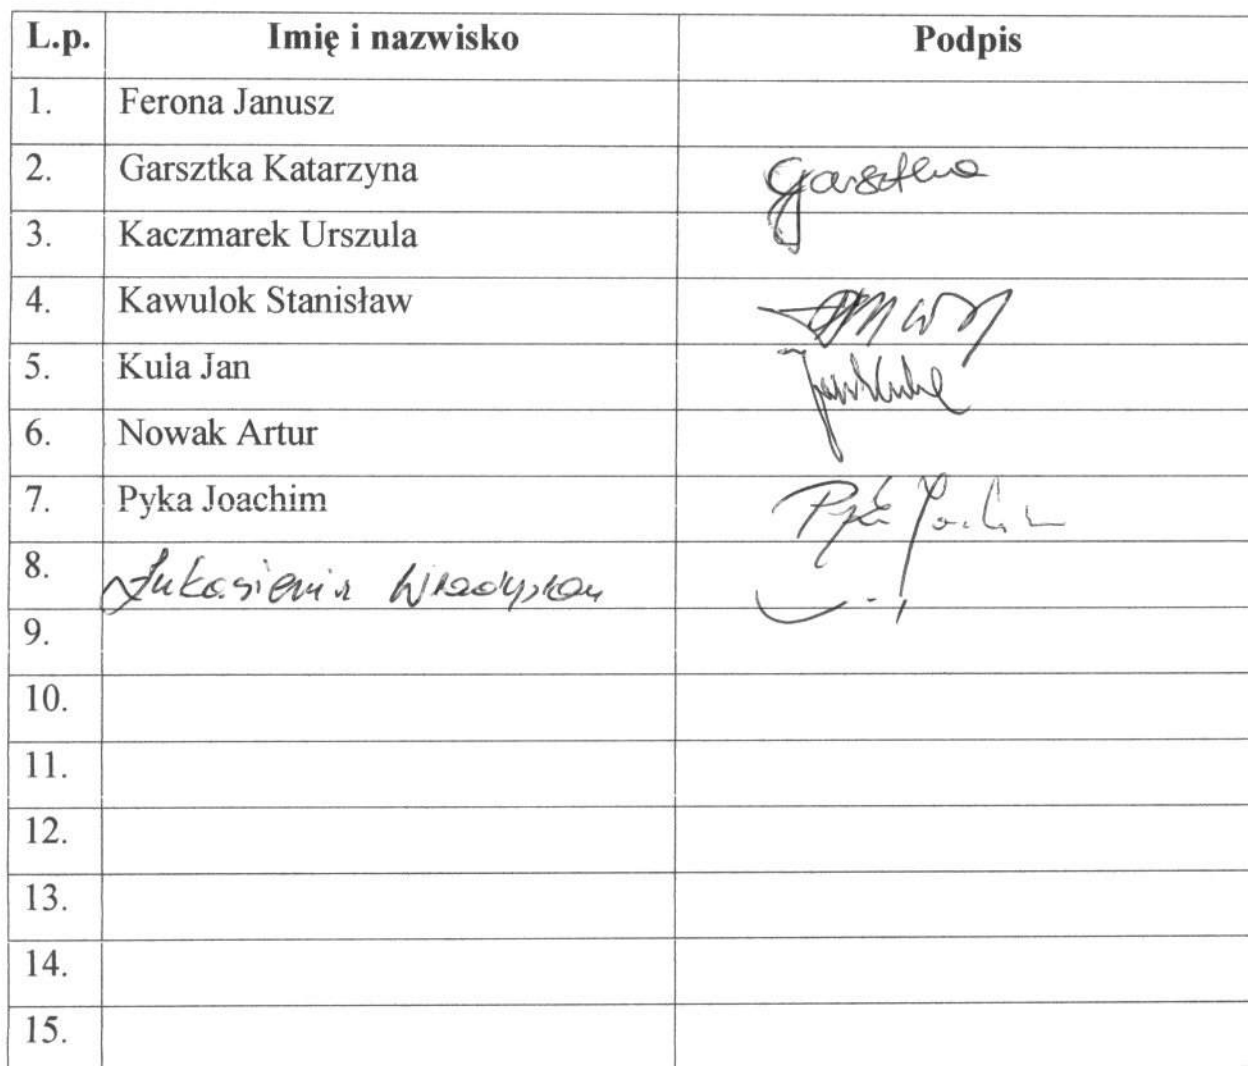 L.p. Imię i nazwisko Podpis
1. Ferona Janusz
2. Garsztka Katarzyna Garsztka
3. Kaczmarek Urszula
4. Kawulok Stanisław
5. Kula Jan Jan Kula
6. Nowak Artur
7. Pyka Joachim Pyka Joachim
8. Łukasiewicz Władysław
9.
10.
11.
12.
13.
14.
15.